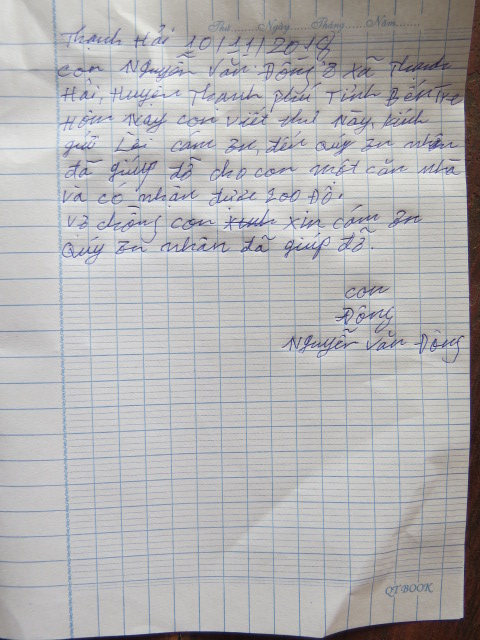 Thứ.........Ngày.........Tháng.........Năm.........
Thạnh Hải 10/11/2018
con Nguyễn Văn Đồng ở xã Thạnh
Hải, Huyện Thạnh phú Tỉnh Bến Tre
Hôm Nay con viết thư Này, kính
gửi Lời cám ơn, đến quý ơn nhân
đã giúp đỡ cho con một căn nhà
và có nhận được 200 Đô.
vợ chồng con xin cám ơn
Quý ơn nhân đã giúp đỡ.
con
Đồng
Nguyễn Văn Đồng
QTBOOK